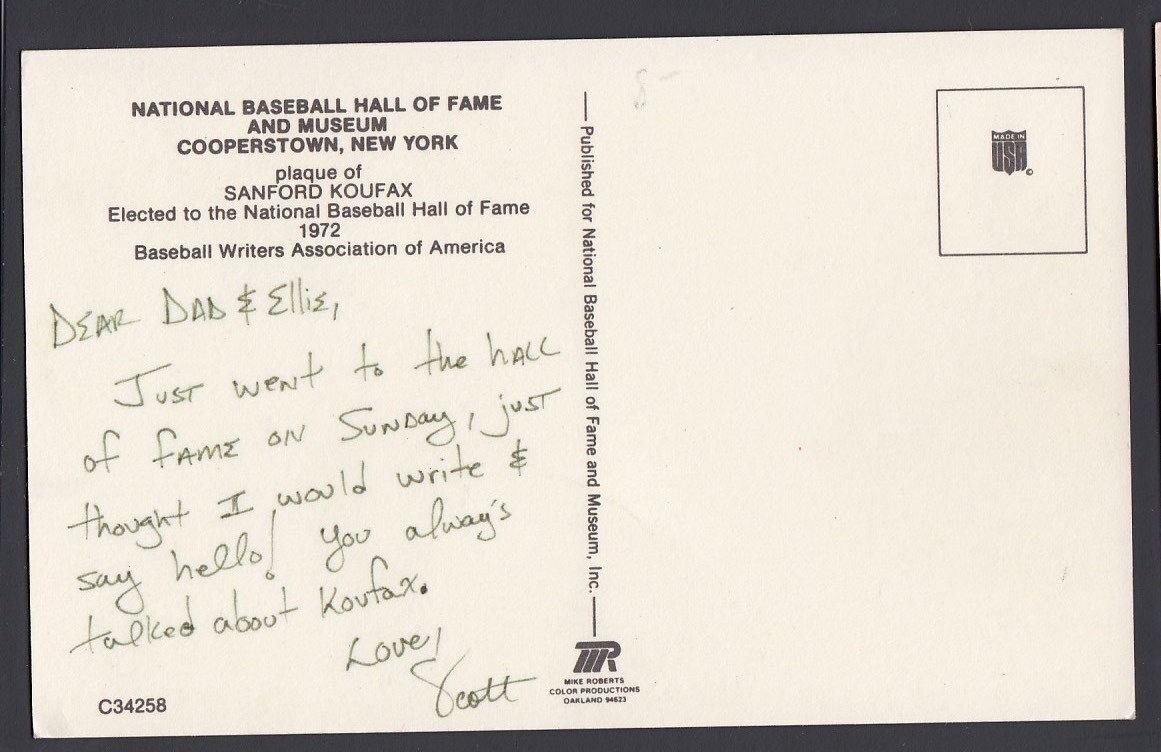 NATIONAL BASEBALL HALL OF FAME
AND MUSEUM
COOPERSTOWN, NEW YORK
plaque of
SANFORD KOUFAX
Elected to the National Baseball Hall of Fame
1972
Baseball Writers Association of America
DEAR DAD & Ellie,
Just went to the hall
of fame on Sunday, just
thought I would write &
say hello! You alway's
talked about Koufax.
Love,
Scott
C34258
Published for National Baseball Hall of Fame and Museum, Inc.
MIKE ROBERTS
COLOR PRODUCTIONS
OAKLAND 94623
MADE IN
USA